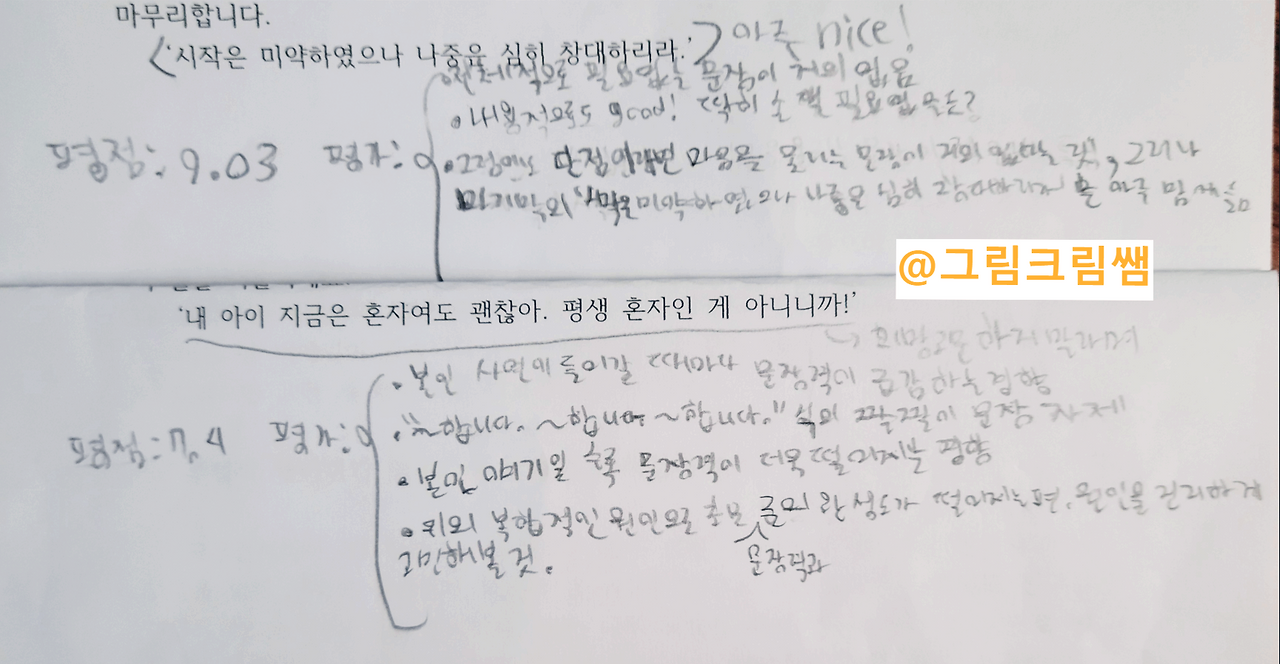 마무리합니다.
'시작은 미약하였으나 나중은 심히 창대하리라.' 아주 nice!
전체적으로 필요없는 문장이 거의 없음
• 내용적으로도 good! 딱히 손 댈 필요없을듯?
평점: 9.03 평가:
• 그럼에도 단점이라면 마음을 울리는 문장이 거의 없다는 것, 그러나
마지막의 시작은 미약하였으나 나중은 심히 창대하리라 는 아주
@그림크림쌤
'내 아이 지금은 혼자여도 괜찮아. 평생 혼자인 게 아니니까!'
→ 희망고문 하지 말라며
• 본인 사연에 들어갈 때마다 문장력이 급감하는 경향
• "~합니다. ~합니다. ~합니다." 식의 문장 자제
평점: 7.4 평가:
• 본인 얘기일 수록 문장력이 더욱 떨어지는 경향
• 이외 복합적인 원인으로 글의 완성도가 떨어지는 편. 원인을 진지하게
문장력과
고민해볼 것.